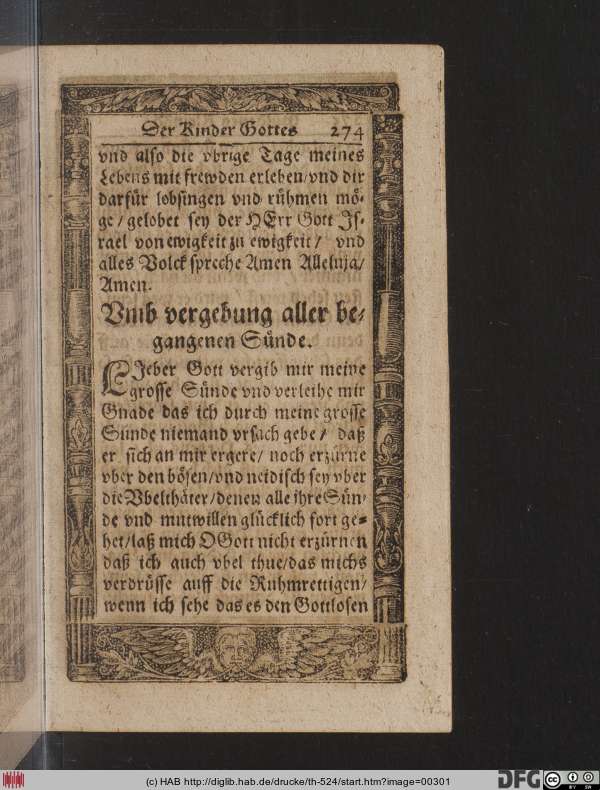 Der Kinder Gottes 274
vnd also die vbrige Tage meines
Lebens mit frewden erleben/vnd dir
darfür lobsingen vnd rühmen mö-
ge/gelobet sey der HErr Gott Is-
rael von ewigkeit zu ewigkeit/ vnd
alles Volck spreche Amen Alleluja/
Amen.
Vmb vergebung aller be-
gangenen Sünde.
LJeber Gott vergib mir meine
grosse Sünde vnd verleihe mir
Gnade das ich durch meine grosse
Sünde niemand vrsach gebe/ daß
er sich an mir ergere/ noch erzürne
vber den bösen/vnd neidisch sey vber
die Vbelthäter/denen alle ihre Sün-
de vnd mutwillen glücklich fort ge-
het/laß mich O Gott nicht erzürnen
daß ich auch vbel thue/das michs
verdrüsse auff die Ruhmrettigen/
wenn ich sehe das es den Gottlosen
(c) HAB http://diglib.hab.de/drucke/th-524/start.htm?image=00301
DFG cc BY SA